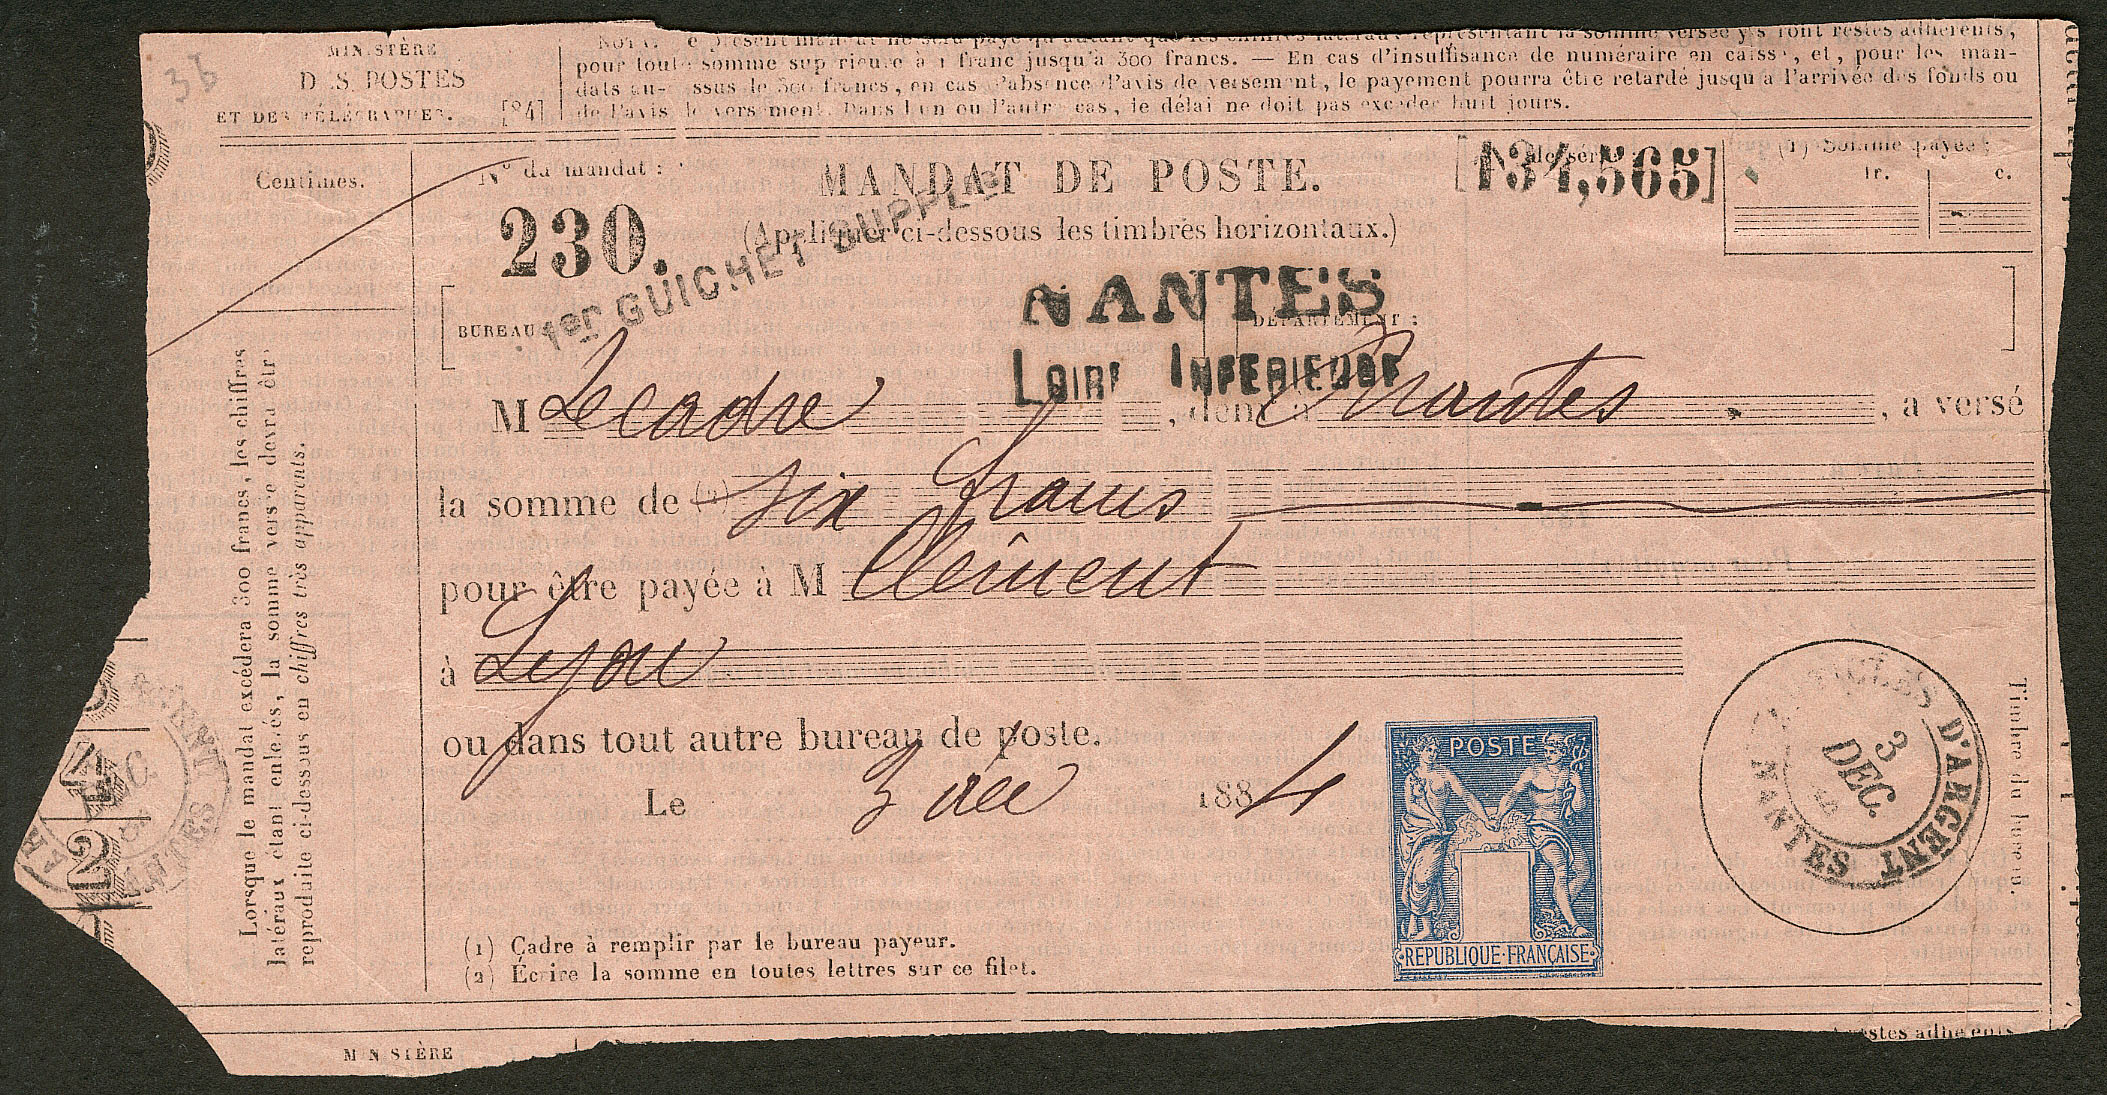 MINISTÈRE
D S. POSTES
ET DES TÉLÉGRAPHES. [84]
pour toute somme supérieure à 1 franc jusqu'à 300 francs. — En cas d'insuffisance de numéraire en caisse, et, pour les man-
dats au- ssus de 300 francs, en cas d'absence d'avis de versement, le payement pourra être retardé jusqu'à l'arrivée des fonds ou
de l'avis de versement. Dans l'un ou l'autre cas, le délai ne doit pas excéder huit jours.
Centimes.
N° du mandat :
230.
MANDAT DE POSTE.
(Appliquer ci-dessous les timbres horizontaux.)
N° de série
[434,565]
(1) Somme payée :
fr. c.
1er GUICHET SUPPLE
NANTES
BUREAU DÉPARTEMENT :
LOIRE INFERIEURE
M Lecadre, dem à Nantes, a versé
la somme de (2) six francs
pour être payée à M Clément
à Lyon
ou dans tout autre bureau de poste.
Le 3 dec 1884
POSTE
REPUBLIQUE FRANÇAISE
D'ARGENT
3
DEC.
NANTES
Timbre du bureau.
(1) Cadre à remplir par le bureau payeur.
(2) Écrire la somme en toutes lettres sur ce filet.
Lorsque le mandat excédera 300 francs, les chiffres
latéraux étant enlevés, la somme versée devra êtr
reproduite ci-dessous en chiffres très apparents.
2
MINISTÈRE
estes adhérents
36